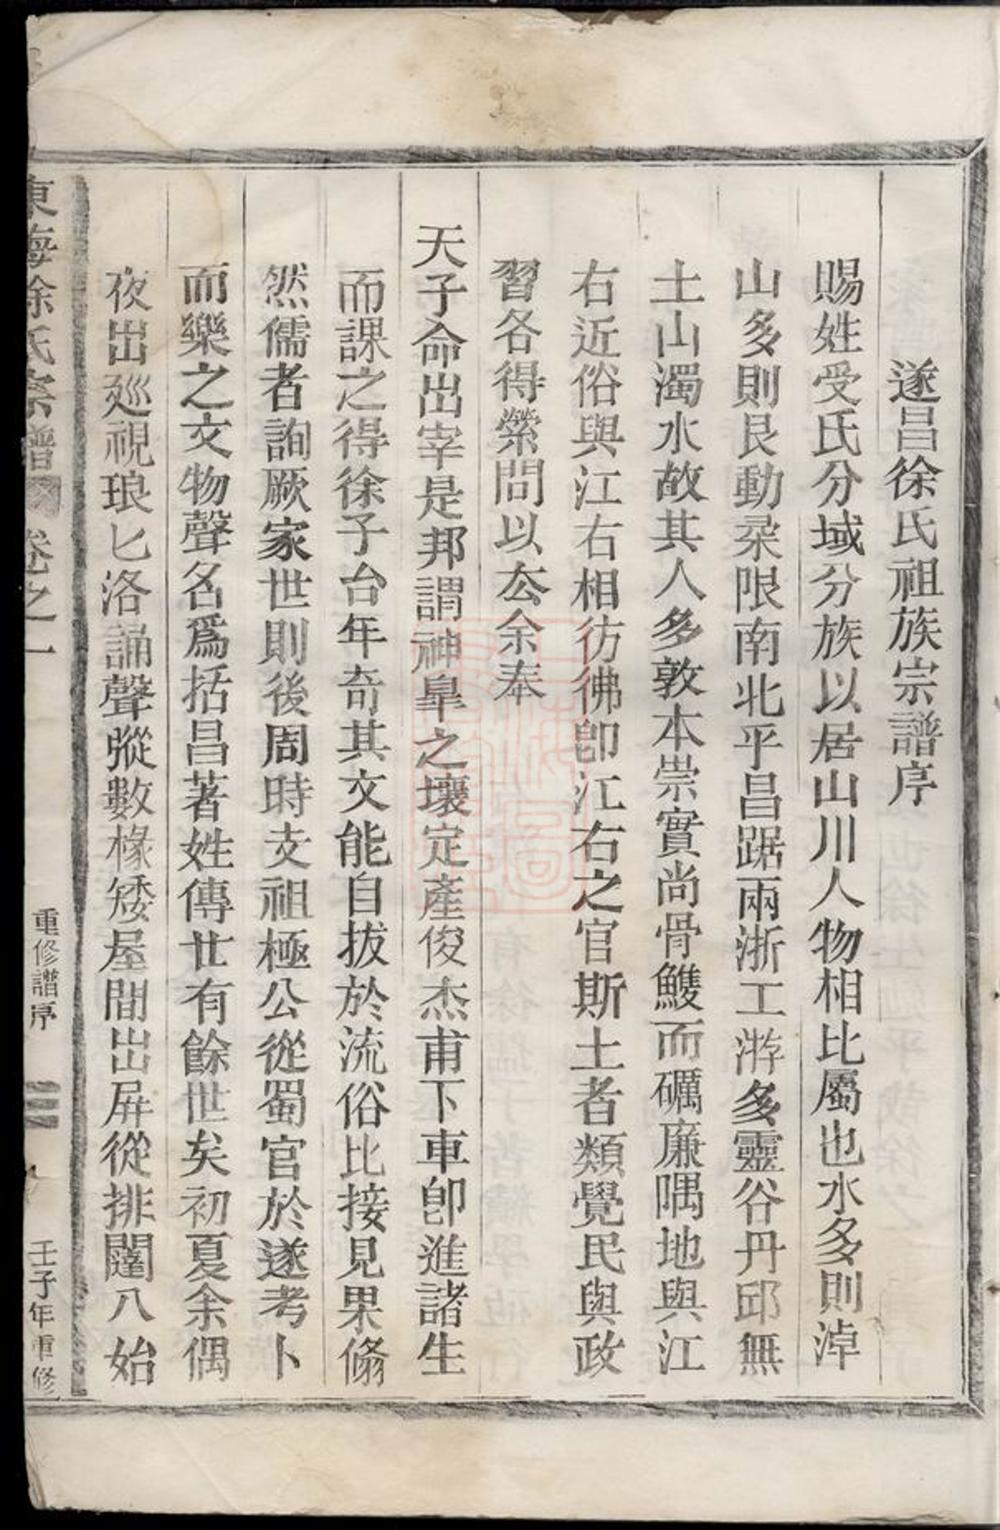 遂昌徐氏祖族宗譜序
賜姓受氏分域分族以居山川人物相比屬也水多則淖
山多則艮動朶限南北平昌踞兩浙工游多靈谷丹邱無
土山濁水故其人多敦本崇實尚骨鯁而礪廉隅地與江
右近俗與江右相彷彿卽江右之官斯土者類覺民與政
習各得縈問以厺余奉
天子命出宰是邦謂神臯之壤定產俊杰甫下車卽進諸生
而課之得徐子台年奇其文能自拔於流俗比接見果翛
然儒者詢厥家世則後周時支祖極公從蜀官於遂考卜
而樂之文物聲名爲括昌著姓傳廿有餘世矣初夏余偶
夜出廵視琅匕洛誦聲嘐數椽矮屋間出屛從排闥入始
東海徐氏宗譜 卷之一
重修譜序
三
壬子年重修